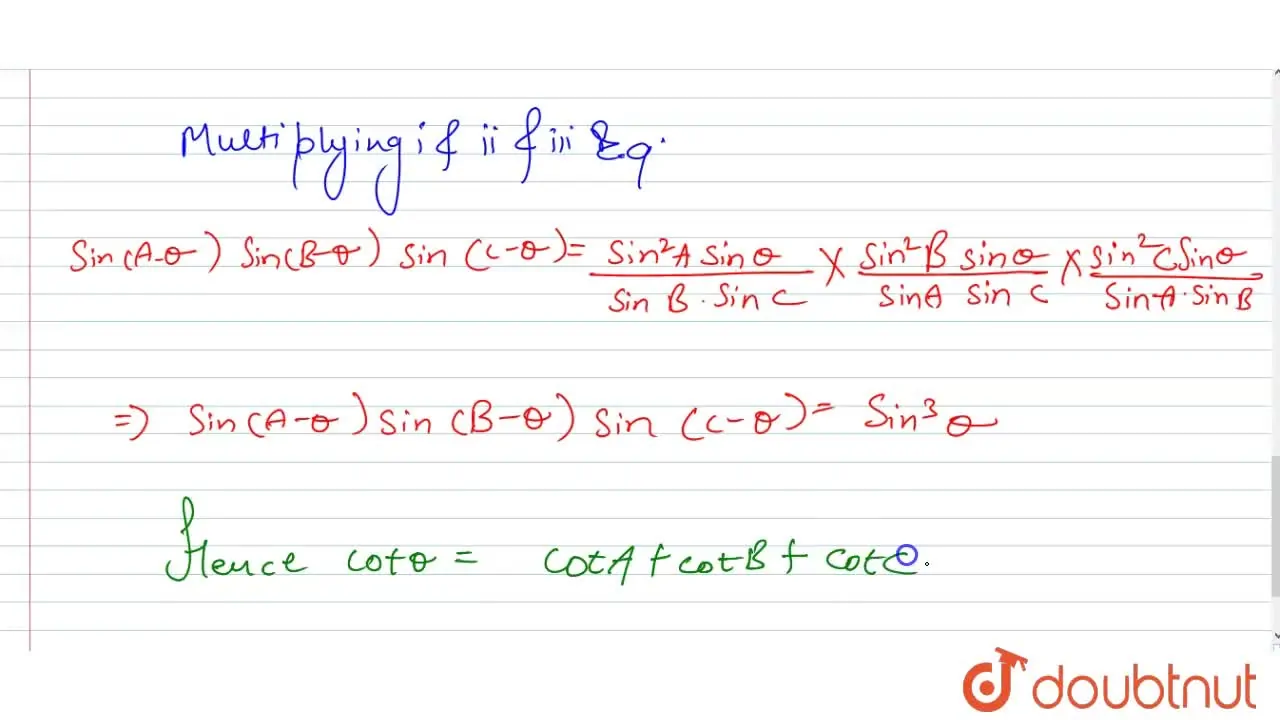 Multiplying i & ii & iii Eq.
Sin(A-θ) Sin(B-θ) Sin (C-θ) = Sin²A Sinθ / Sin B . Sin C × Sin²B Sinθ / SinA Sin C × Sin²C Sinθ / SinA . Sin B
=> Sin(A-θ) Sin (B-θ) Sin (C-θ) = Sin³θ
Hence cotθ = cotA + cotB + cotC.
doubtnut